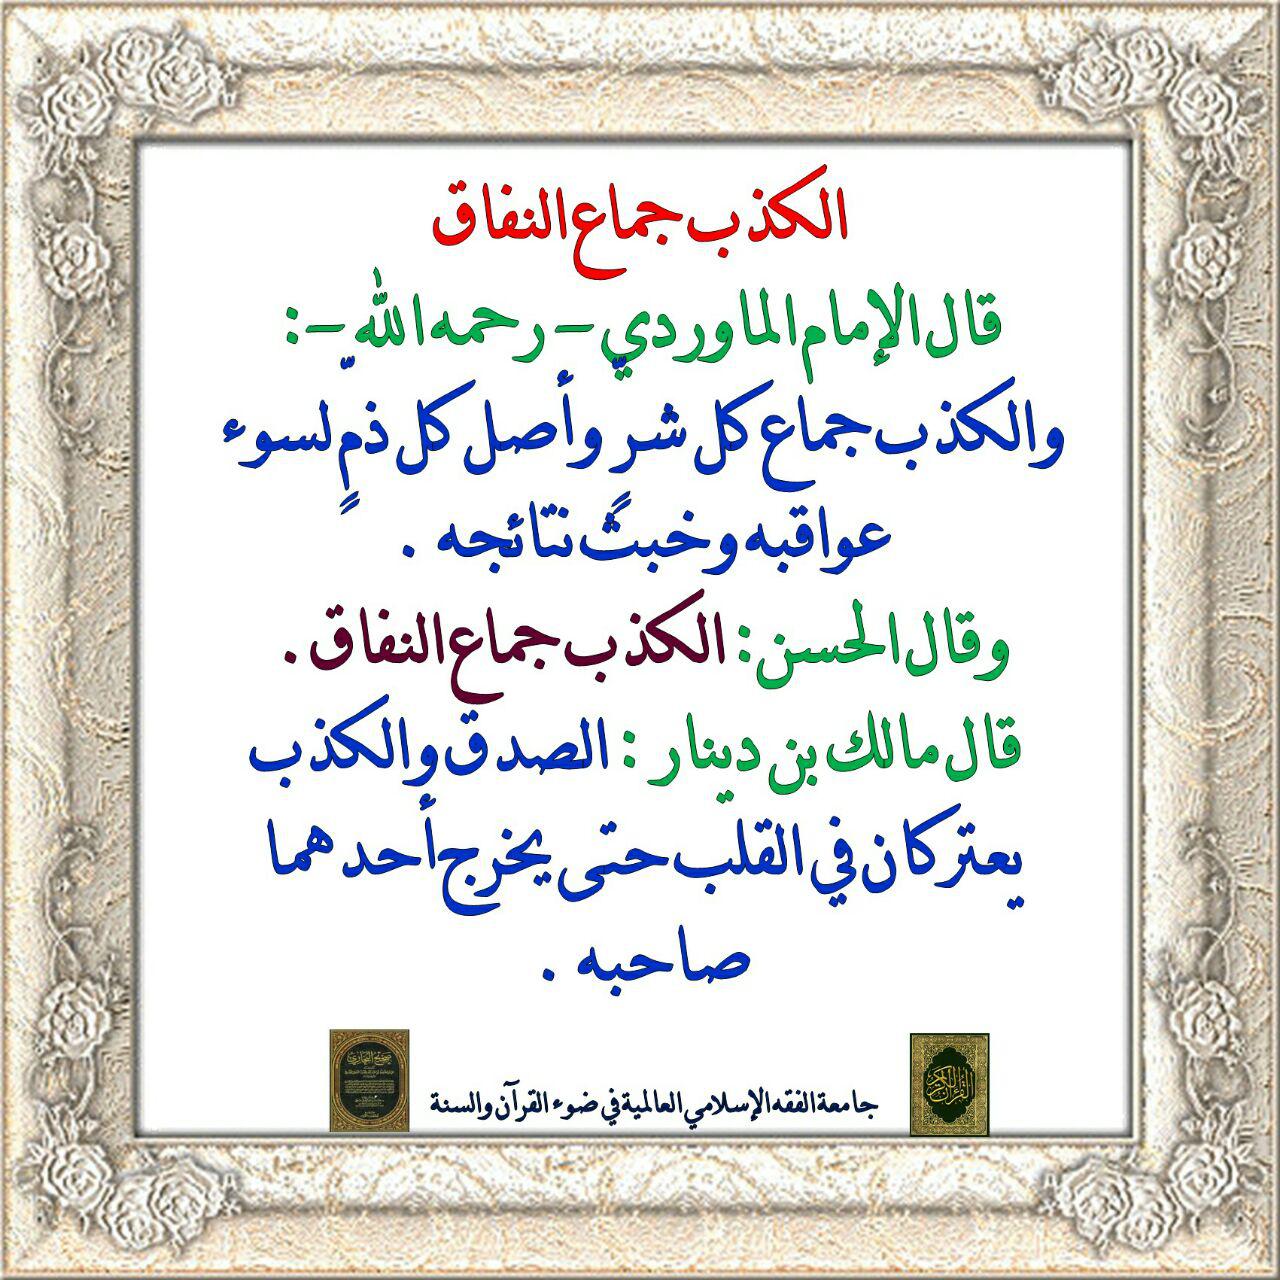 الكذب جماع النفاق
قال الإمام الماوردي - رحمه الله -:
والكذب جماع كل شرٍّ وأصل كل ذمٍّ لسوء
عواقبه وخبثً نتائجه .
وقال الحسن: الكذب جماع النفاق .
قال مالك بن دينار : الصدق والكذب
يعتركان في القلب حتى يخرج أحدهما
صاحبه .
صحيح البخاري
القرآن الكريم
جامعة الفقه الإسلامي العالمية في ضوء القرآن والسنة